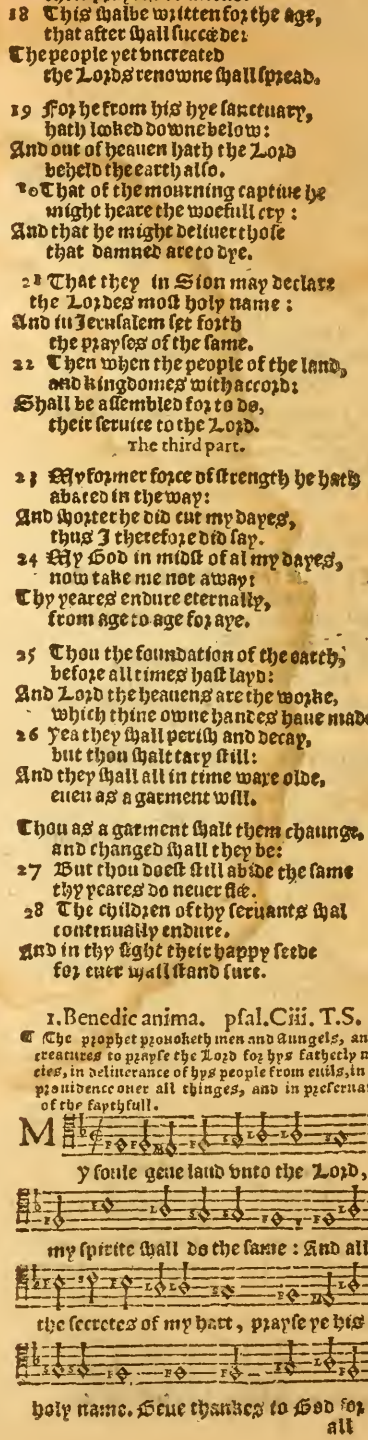 18 This shalbe written for the age,
that after shall succede:
The people yet vncreated
the Lords renowne shall spread.
19 For he from his hye sanctuary,
hath looked downe below:
And out of heauen hath the Lord
beheld the earth also.
20 That of the mourning captiue he
might heare the woefull cry :
And that he might deliuer those
that damned are to dye.
21 That they in Sion may declare
the Lordes most holy name :
And in Jerusalem set forth
the prayses of the same.
22 Then when the people of the land,
and kingdomes with accord:
Shall be assembled for to do,
their seruice to the Lord.
The third part.
23 My former force of strength he hath
abated in the way:
And shorter he did cut my dayes,
thus I therefore did say.
24 My God in midst of al my dayes,
now take me not away:
Thy yeares endure eternally,
from age to age for aye.
25 Thou the foundation of the earth,
before all times hast layd:
And Lord the heauens are the worke,
which thine owne handes haue made
26 Yea they shall perish and decay,
but thou shalt tary still:
And they shall all in time waxe olde,
euen as a garment will.
Thou as a garment shalt them chaunge,
and changed shall they be:
27 But thou doest still abide the same
thy yeares do neuer flee.
28 The children of thy seruants shal
continually endure.
And in thy sight their happy seede
for euer shall stand sure.
1. Benedic anima. psal. Ciii. T.S.
¶ The prophet prouoketh men and Aungels, an
creatures to prayse the Lord for hys fatherly m
cies, in deliuerance of hys people from euils, in
prouidence ouer all thinges, and in preserua
of the faythfull.
My soule geue laud vnto the Lord,
my spirite shall do the same : And all
the secretes of my hart, prayse ye his
holy name. Geue thankes to God for
all